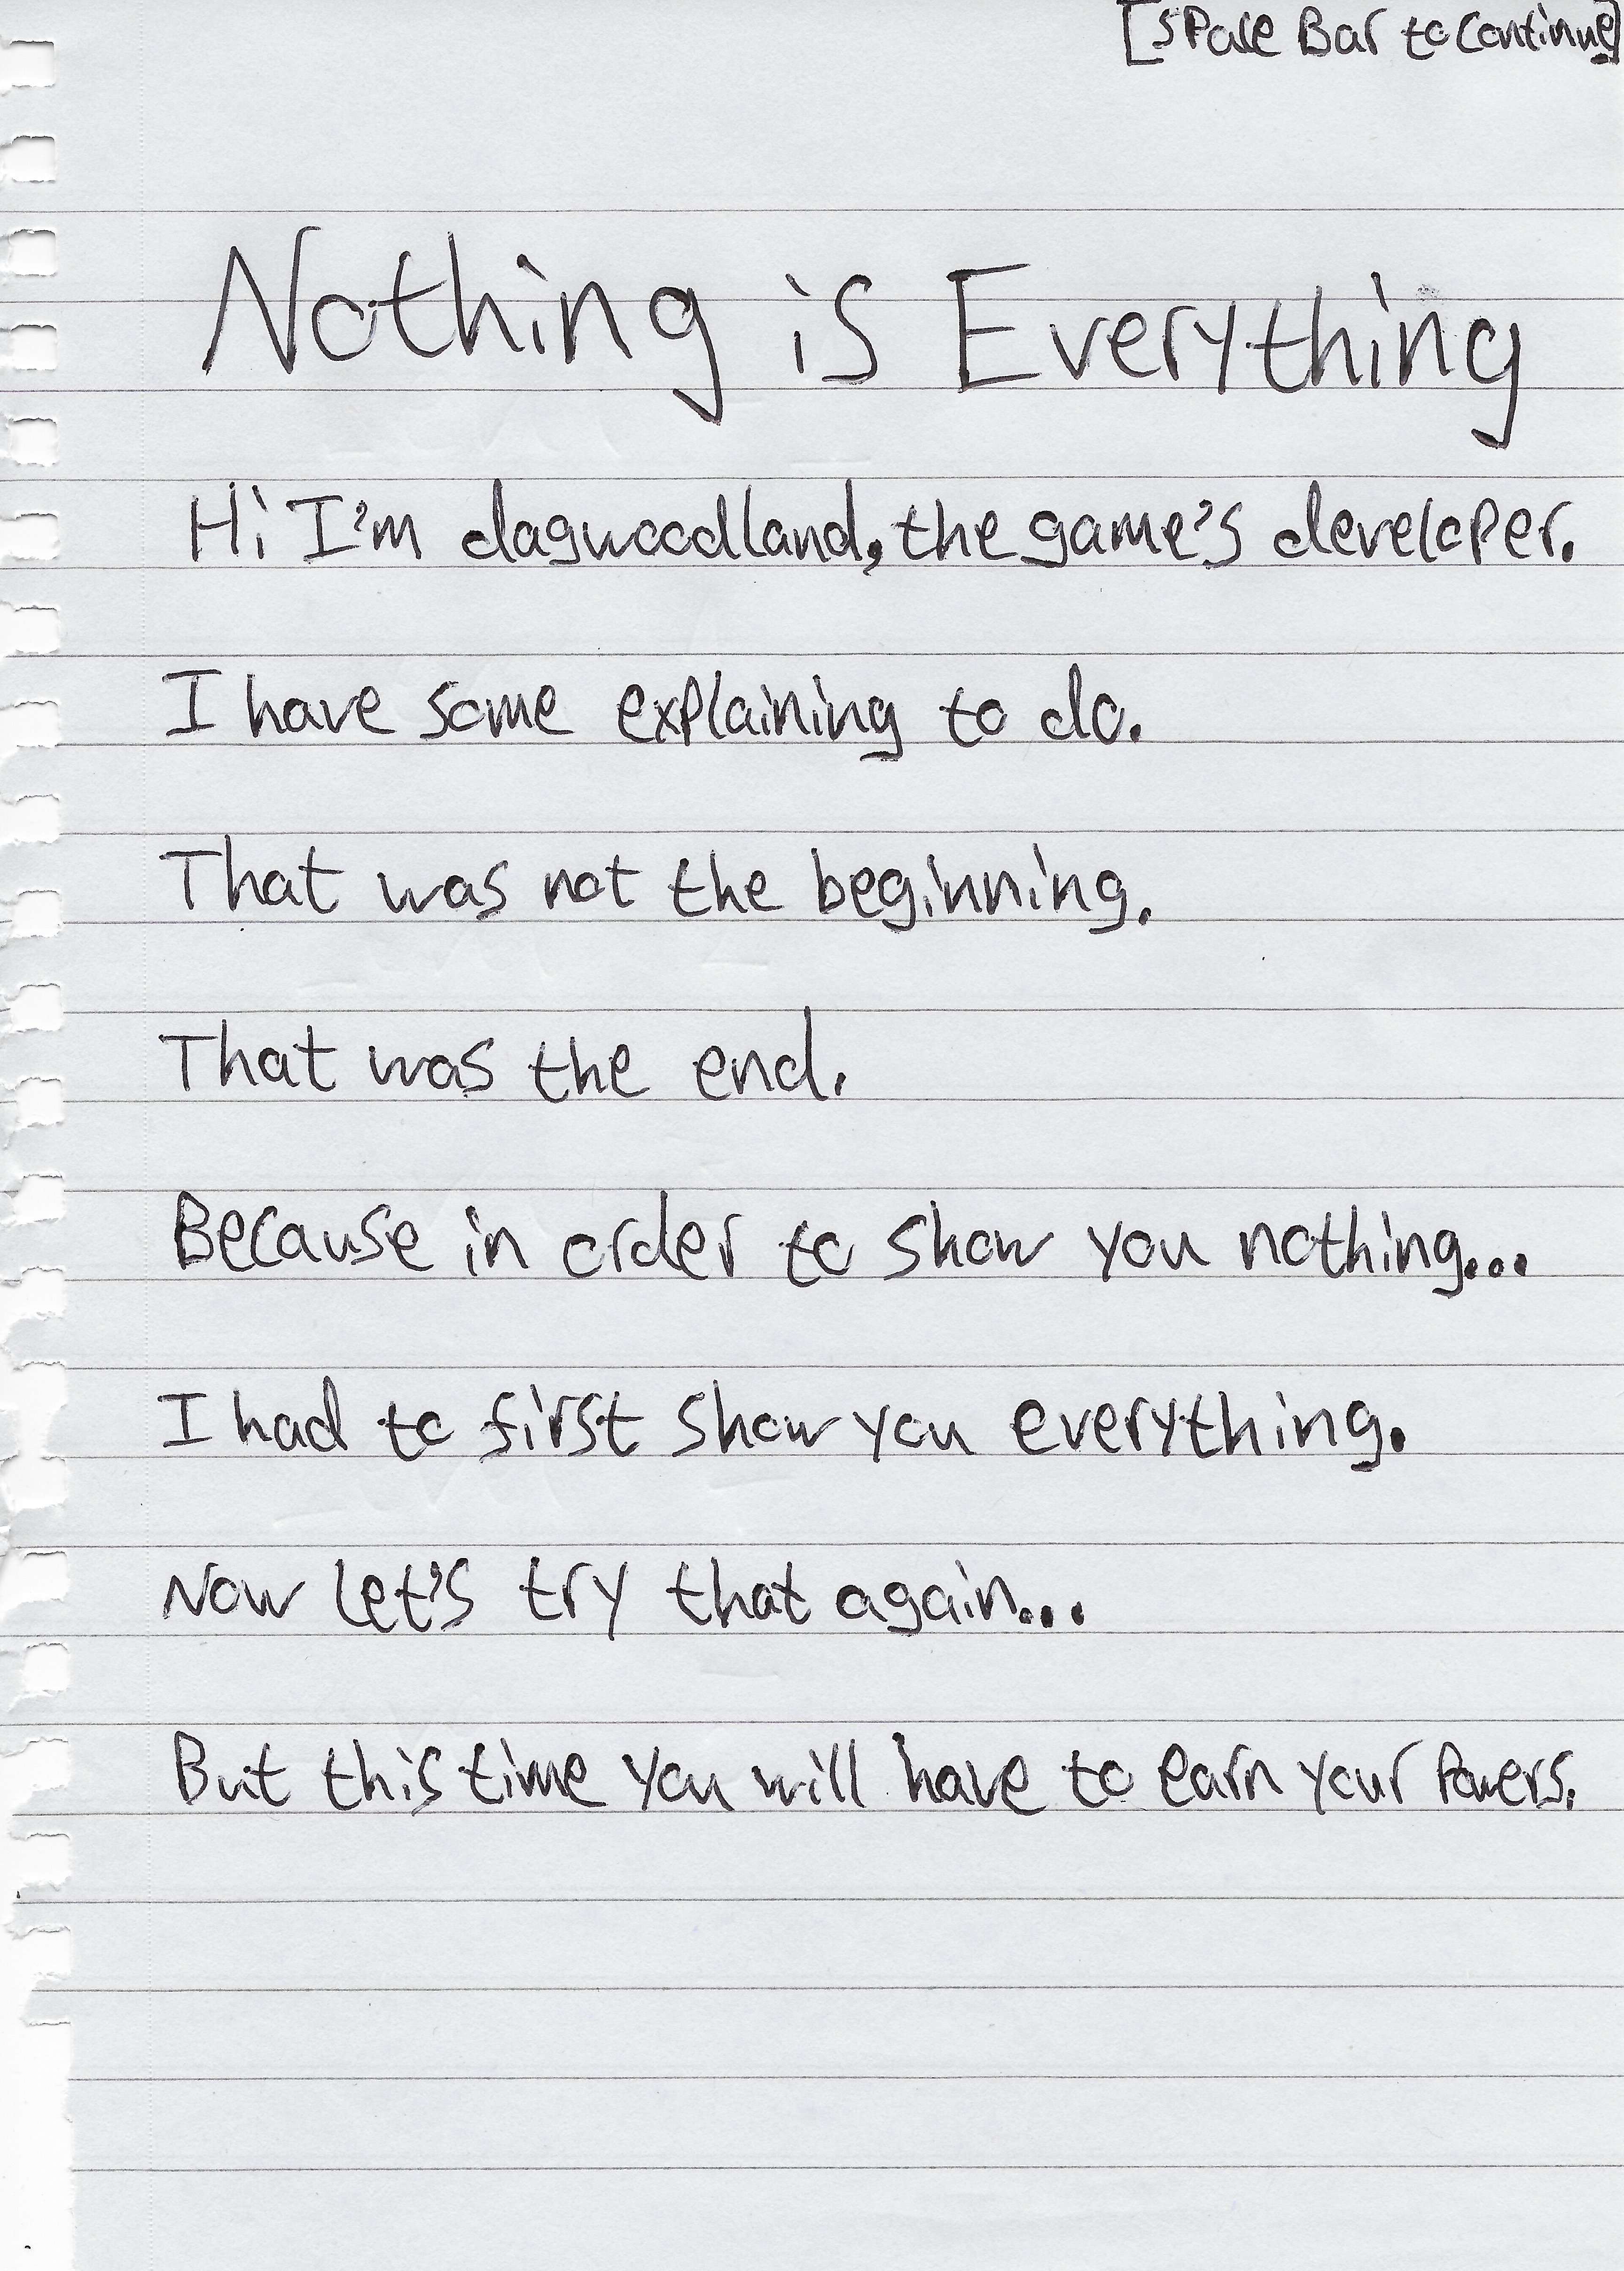 [Space Bar to continue]
Nothing is Everything
Hi I'm dagwoodland, the game's developer.
I have some explaining to do.
That was not the beginning.
That was the end.
Because in order to show you nothing...
I had to first show you everything.
Now let's try that again...
But this time you will have to earn your powers.